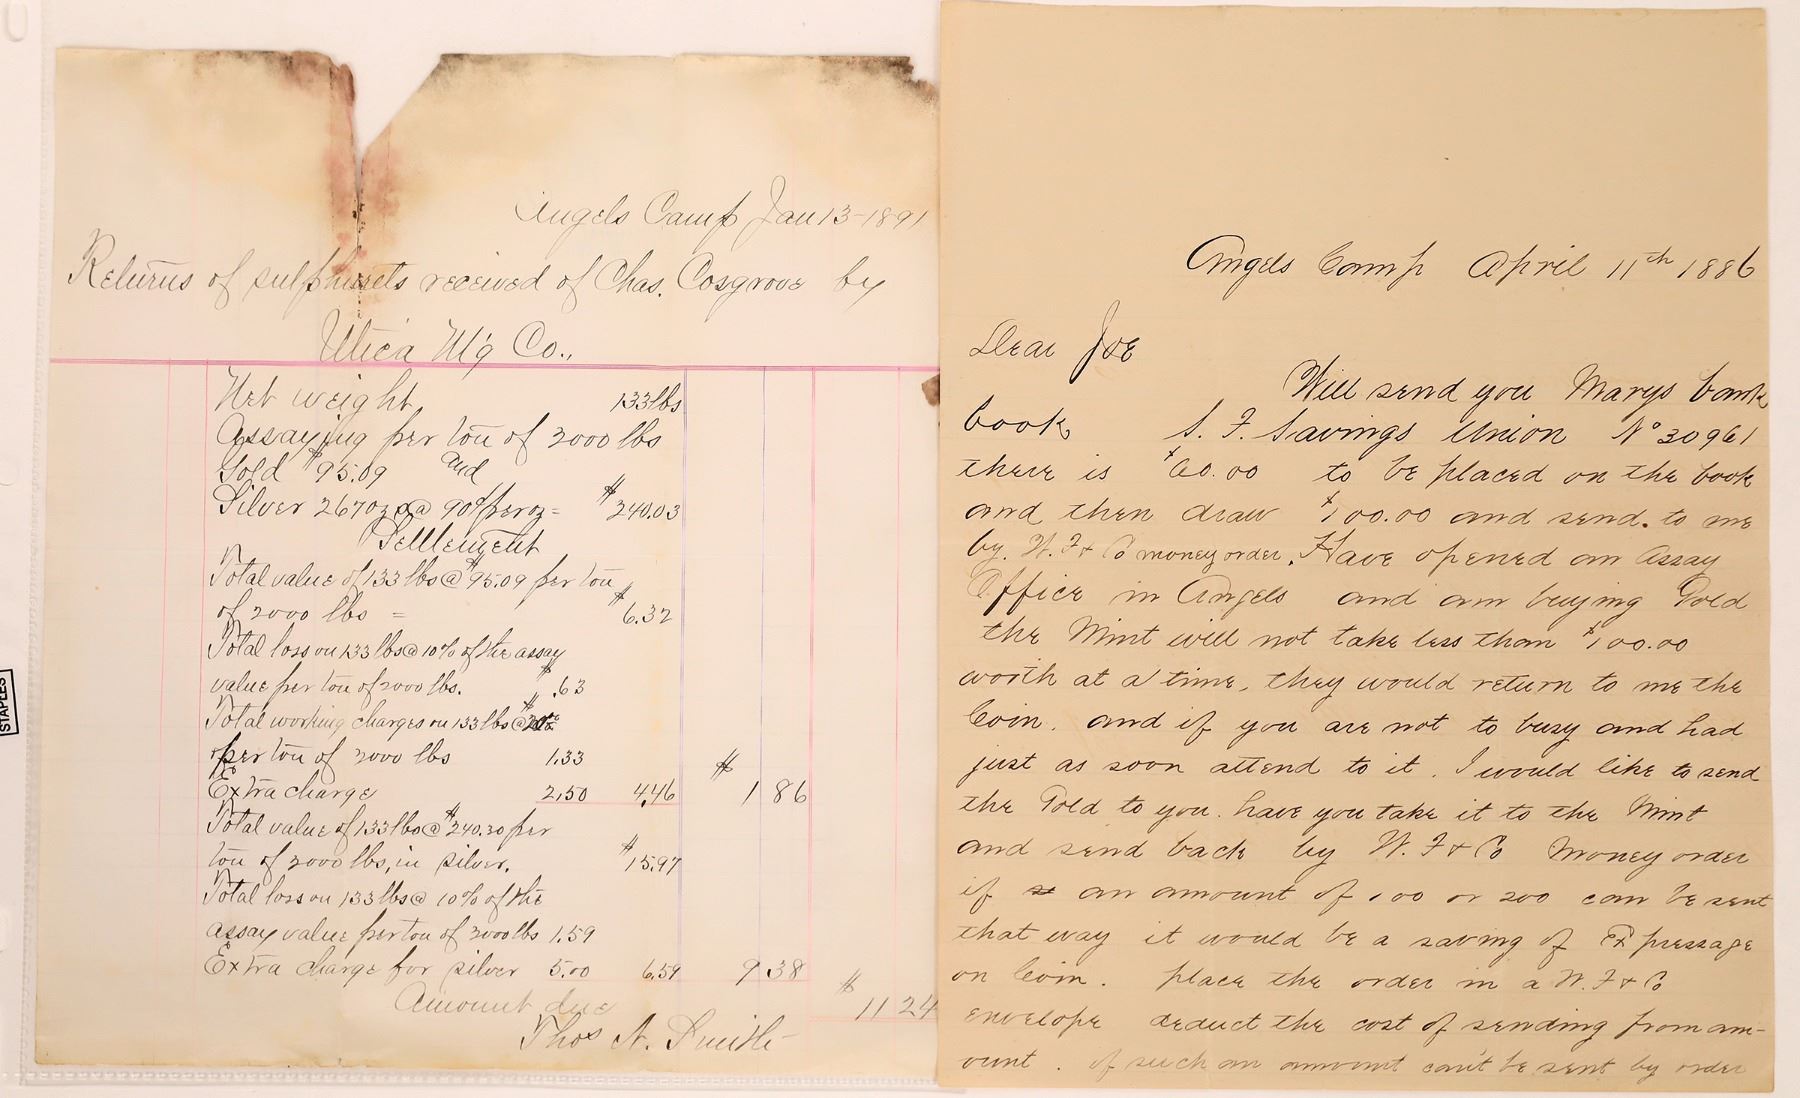 Angels Camp Jan 13-1891
Returns of sulphurets received of Chas. Cosgrove by
Utica M'g Co.,
Net weight 133lbs
Assaying per ton of 2000 lbs
Gold $95.09 and
Silver 267oz @ 90¢ per oz = $240.03
Settlement
Total value of 133 lbs @ $95.09 per ton
of 2000 lbs = $6.32
Total loss on 133 lbs @ 10% of the assay
value per ton of 2000 lbs. $.63
Total working charges on 133 lbs @ $
per ton of 2000 lbs 1.33
Extra charge 2,50 4,46 $1 86
Total value of 133 lbs @ $240.30 per
ton of 2000 lbs, in silver. $15.97
Total loss on 133 lbs @ 10% of the
assay value per ton of 2000 lbs 1.59
Extra charge for silver 5.00 6.59 9 38
Amount due $11 24
Thos N. Smith
STAPLES
Angels Camp April 11th 1886
Dear Joe
Will send you Marys bank
book S. F. Savings Union No 30961
there is $60.00 to be placed on the book
and then draw $100.00 and send. to me
by. W. F & Co money order. Have opened an Assay
Office in Angels and am buying Gold
the Mint will not take less than $100.00
worth at a time, they would return to me the
Coin. and if you are not to busy and had
just as soon attend to it. I would like to send
the Gold to you. have you take it to the Mint
and send back by W. F & Co Money order
if an amount of 100 or 200 can be sent
that way it would be a saving of Expressage
on Coin. place the order in a W. F & Co
envelope deduct the cost of sending from am-
ount. if such an ammount can't be sent by order